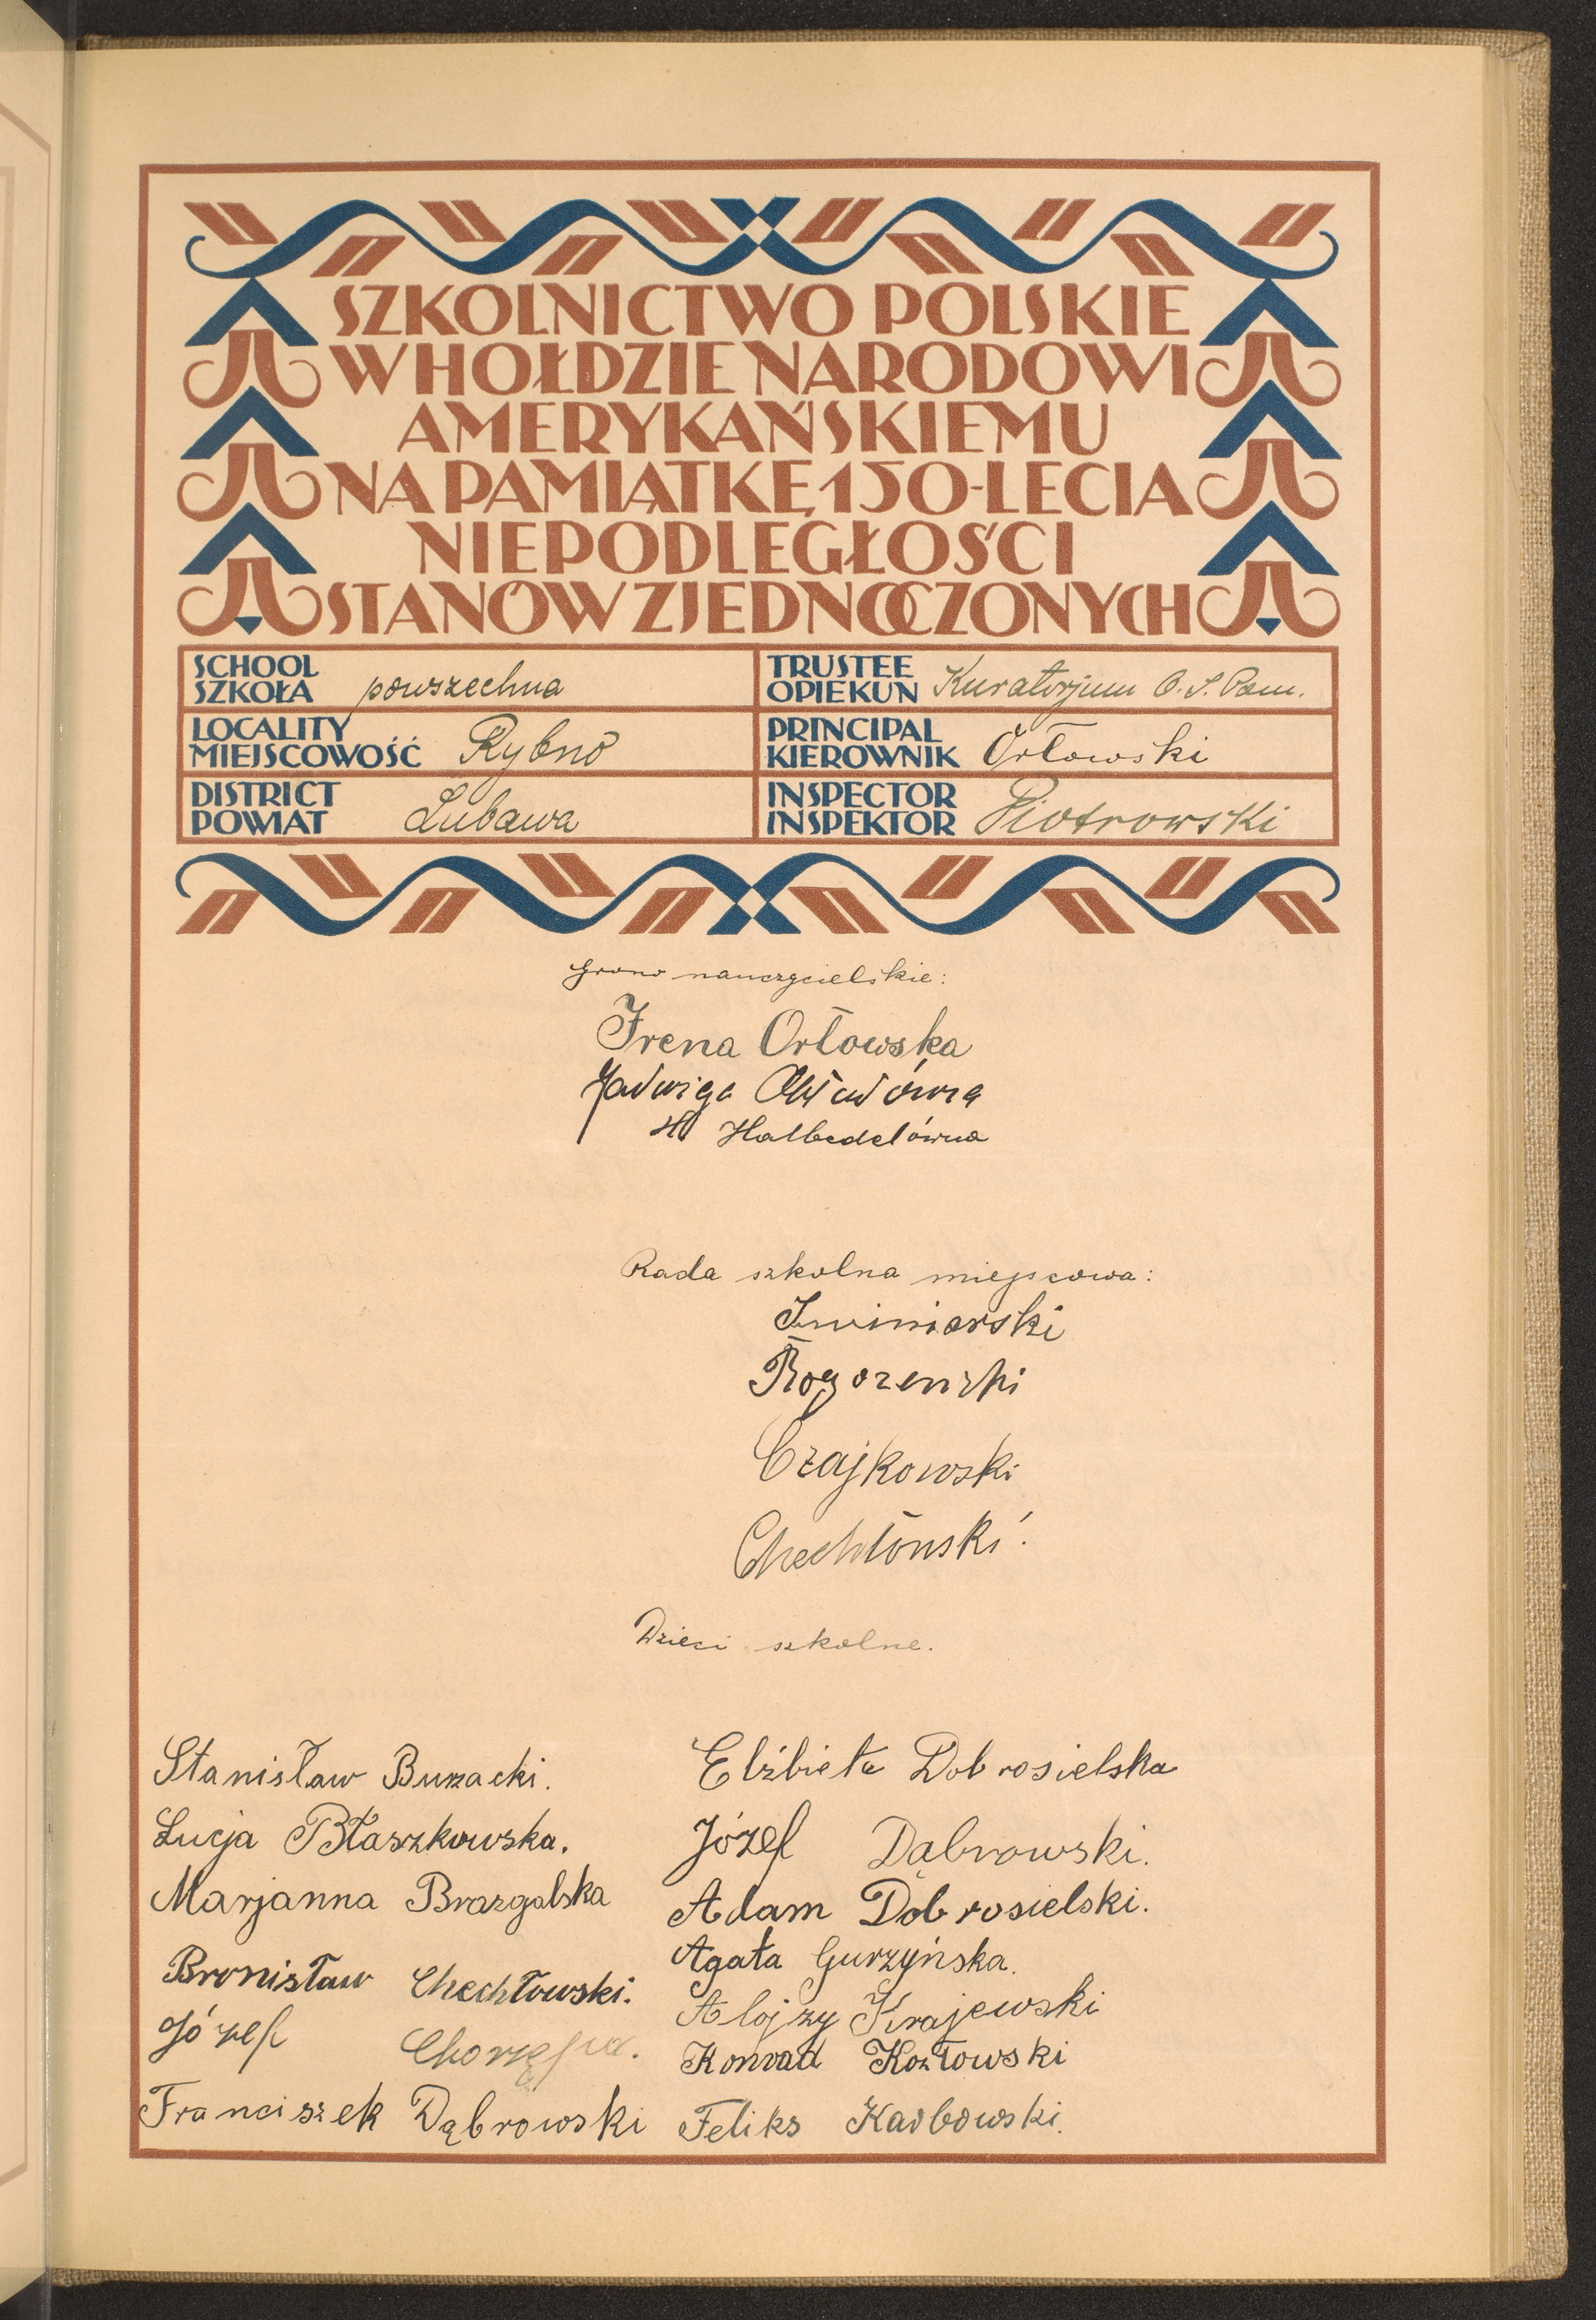 SZKOLNICTWO POLSKIE
W HOŁDZIE NARODOWI
AMERYKAŃSKIEMU
NA PAMIĄTKĘ 150-LECIA
NIEPODLEGŁOŚCI
STANÓW ZJEDNOCZONYCH
SCHOOL
SZKOŁA powszechna
TRUSTEE
OPIEKUN Kuratorjum O. S. Pom.
LOCALITY
MIEJSCOWOŚĆ Rybno
PRINCIPAL
KIEROWNIK Orłowski
DISTRICT
POWIAT Lubawa
INSPECTOR
INSPEKTOR Piotrowski
Grono nauczycielskie:
Irena Orłowska
Jadwiga
H Halbedelówna
Rada szkolna miejscowa:
Czajkowski
Dzieci szkolne.
Stanisław Buzacki.
Łucja Błaszkowska.
Marjanna Brazgalska
Bronisław Chechłowski.
Józef
Franciszek Dąbrowski
Elżbieta Dobrosielska
Józef Dąbrowski.
Adam Dobrosielski.
Agata Gurzyńska.
Alojzy Krajewski
Konrad Kozłowski
Feliks Karbowski.